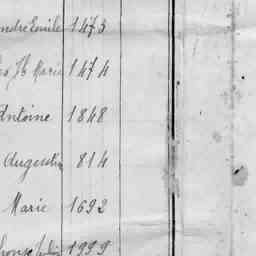 ndre Emile 1473
Marie 1474
Antoine 1848
Augustin 814
Marie 1692
1999